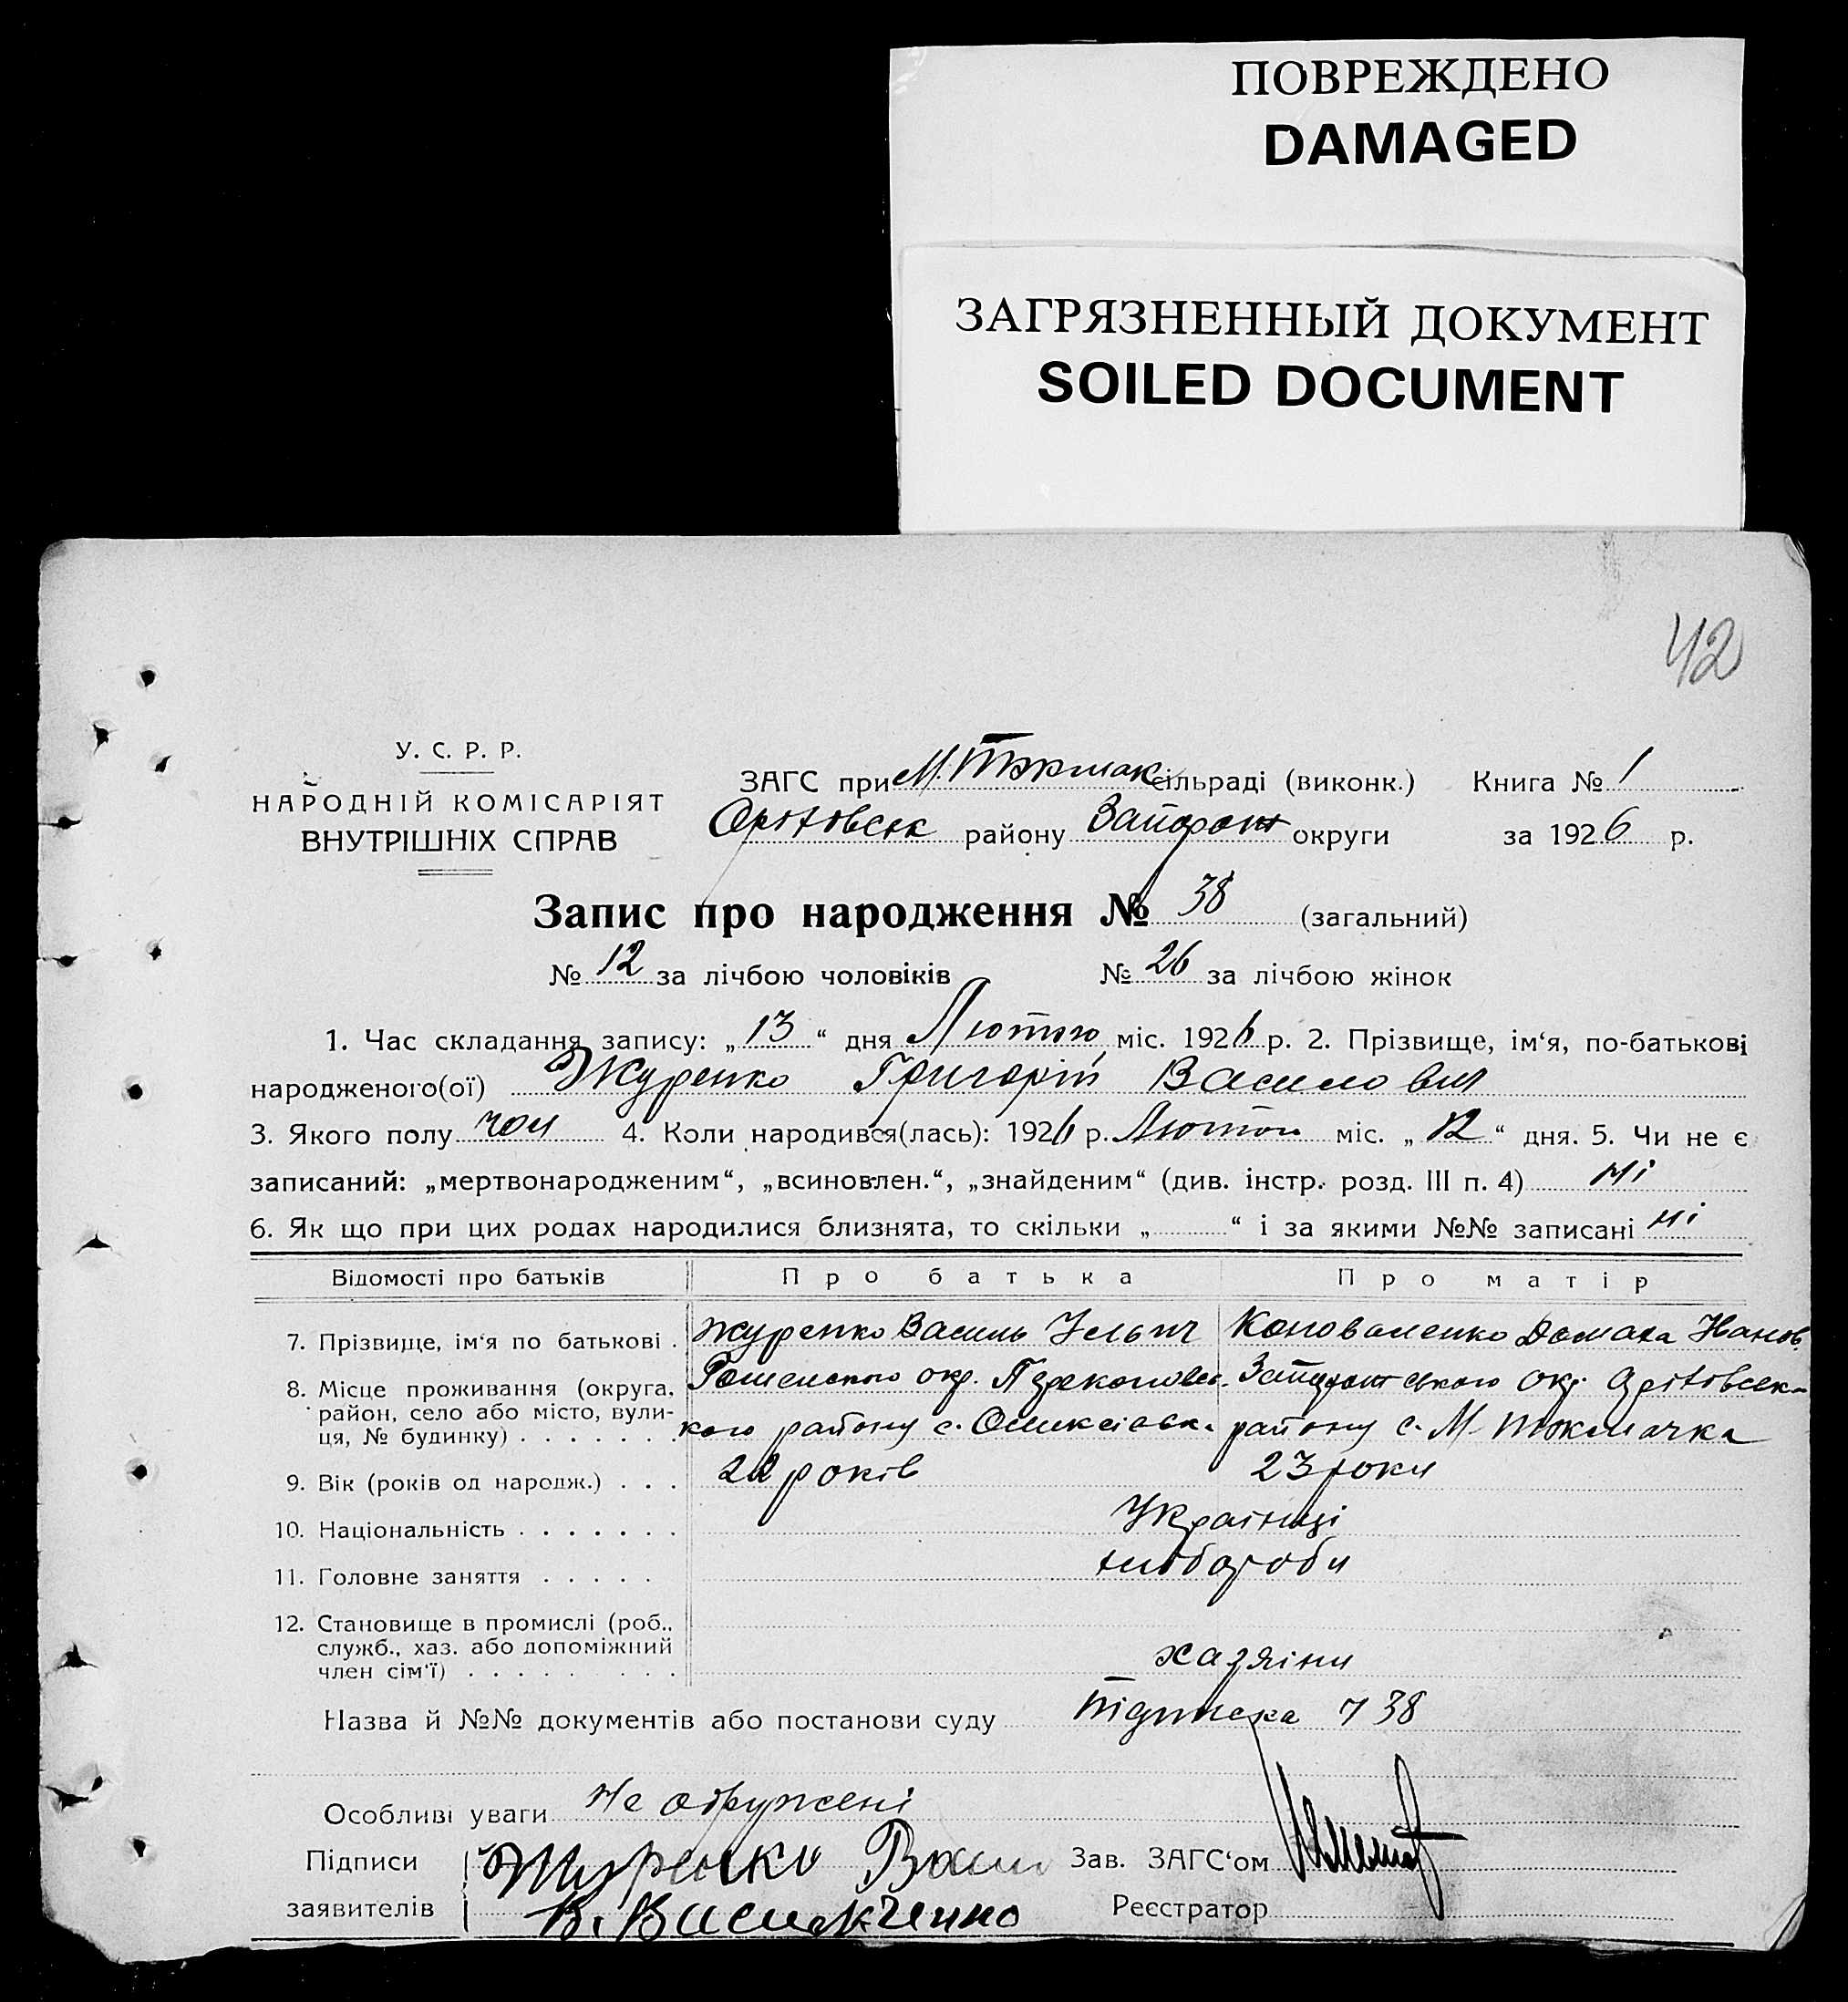 ПОВРЕЖДЕНО
DAMAGED
ЗАГРЯЗНЕННЫЙ ДОКУМЕНТ
SOILED DOCUMENT
42
У. С. Р. Р.
НАРОДНІЙ КОМІСАРІЯТ
ВНУТРІШНІХ СПРАВ
ЗАГС при М. Токмак сільраді (виконк.) Книга № 1
Оріховськ району Запорож округи за 1926 р.
Запис про народження № 38 (загальний)
№ 12 за лічбою чоловіків № 26 за лічбою жінок
1. Час складання запису: „13“ дня Лютого міс. 1926 р. 2. Прізвище, ім‘я, по-батькові
народженого(ої) Журенко Григорій Василович
3. Якого полу чол 4. Коли народився(лась): 1926 р. Лютого міс. „12“ дня. 5. Чи не є
записаний: „мертвонародженим“, „всиновлен.“, „знайденим“ (див. інстр. розд. III п. 4) ні
6. Як що при цих родах народилися близнята, то скільки „ “ і за якими №№ записані ні
Відомості про батьків Про батька Про матір
7. Прізвище, ім‘я по батькові . Журенко Василь Ільїч Коноваленко Домаха Іванов.
8. Місце проживання (округа, район, село або місто, вулиця, № будинку) . . . . . . .
Роменського окр. кого району с. Олексіївка
Запорожського окр. Оріховськ району с. М-Токмачка
9. Вік (років од народж.) . . . 22 років 23 роки
10. Національність . . . . . . . Українці
11. Головне заняття . . . . . хлібороби
12. Становище в промислі (роб.,
служб., хаз. або допоміжний
член сім‘ї) . . . . . . . . . хазяїни
Назва й №№ документів або постанови суду Підписка 738
Особливі уваги Не одружені
Підписи Журенко Васил Зав. ЗАГС‘ом
заявителів В. Васильченко Реєстратор